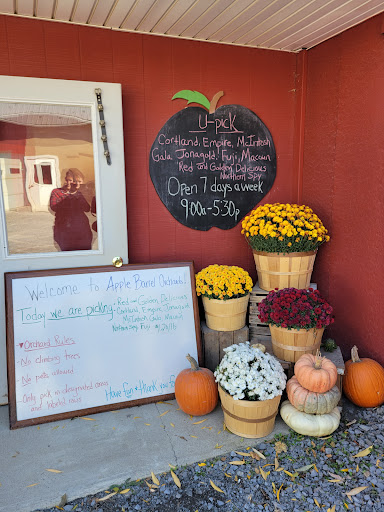 U-pick
Cortland, Empire, McIntosh
Gala Jonagold, Fuji, Macoun
Red and Golden Delicious
Northern Spy
Open 7 days a week
9:00a-5:30p
Welcome to Apple Barrel Orchards!
Today we are picking: Red and Golden Delicious
Cortland, Empire, Jonagold
McIntosh Gala, Macoun
Northern Spy Fuji
Orchard Rules
- No climbing trees
- No pets allowed
- Only pick in designated areas
and marked rows
Have fun & thank you